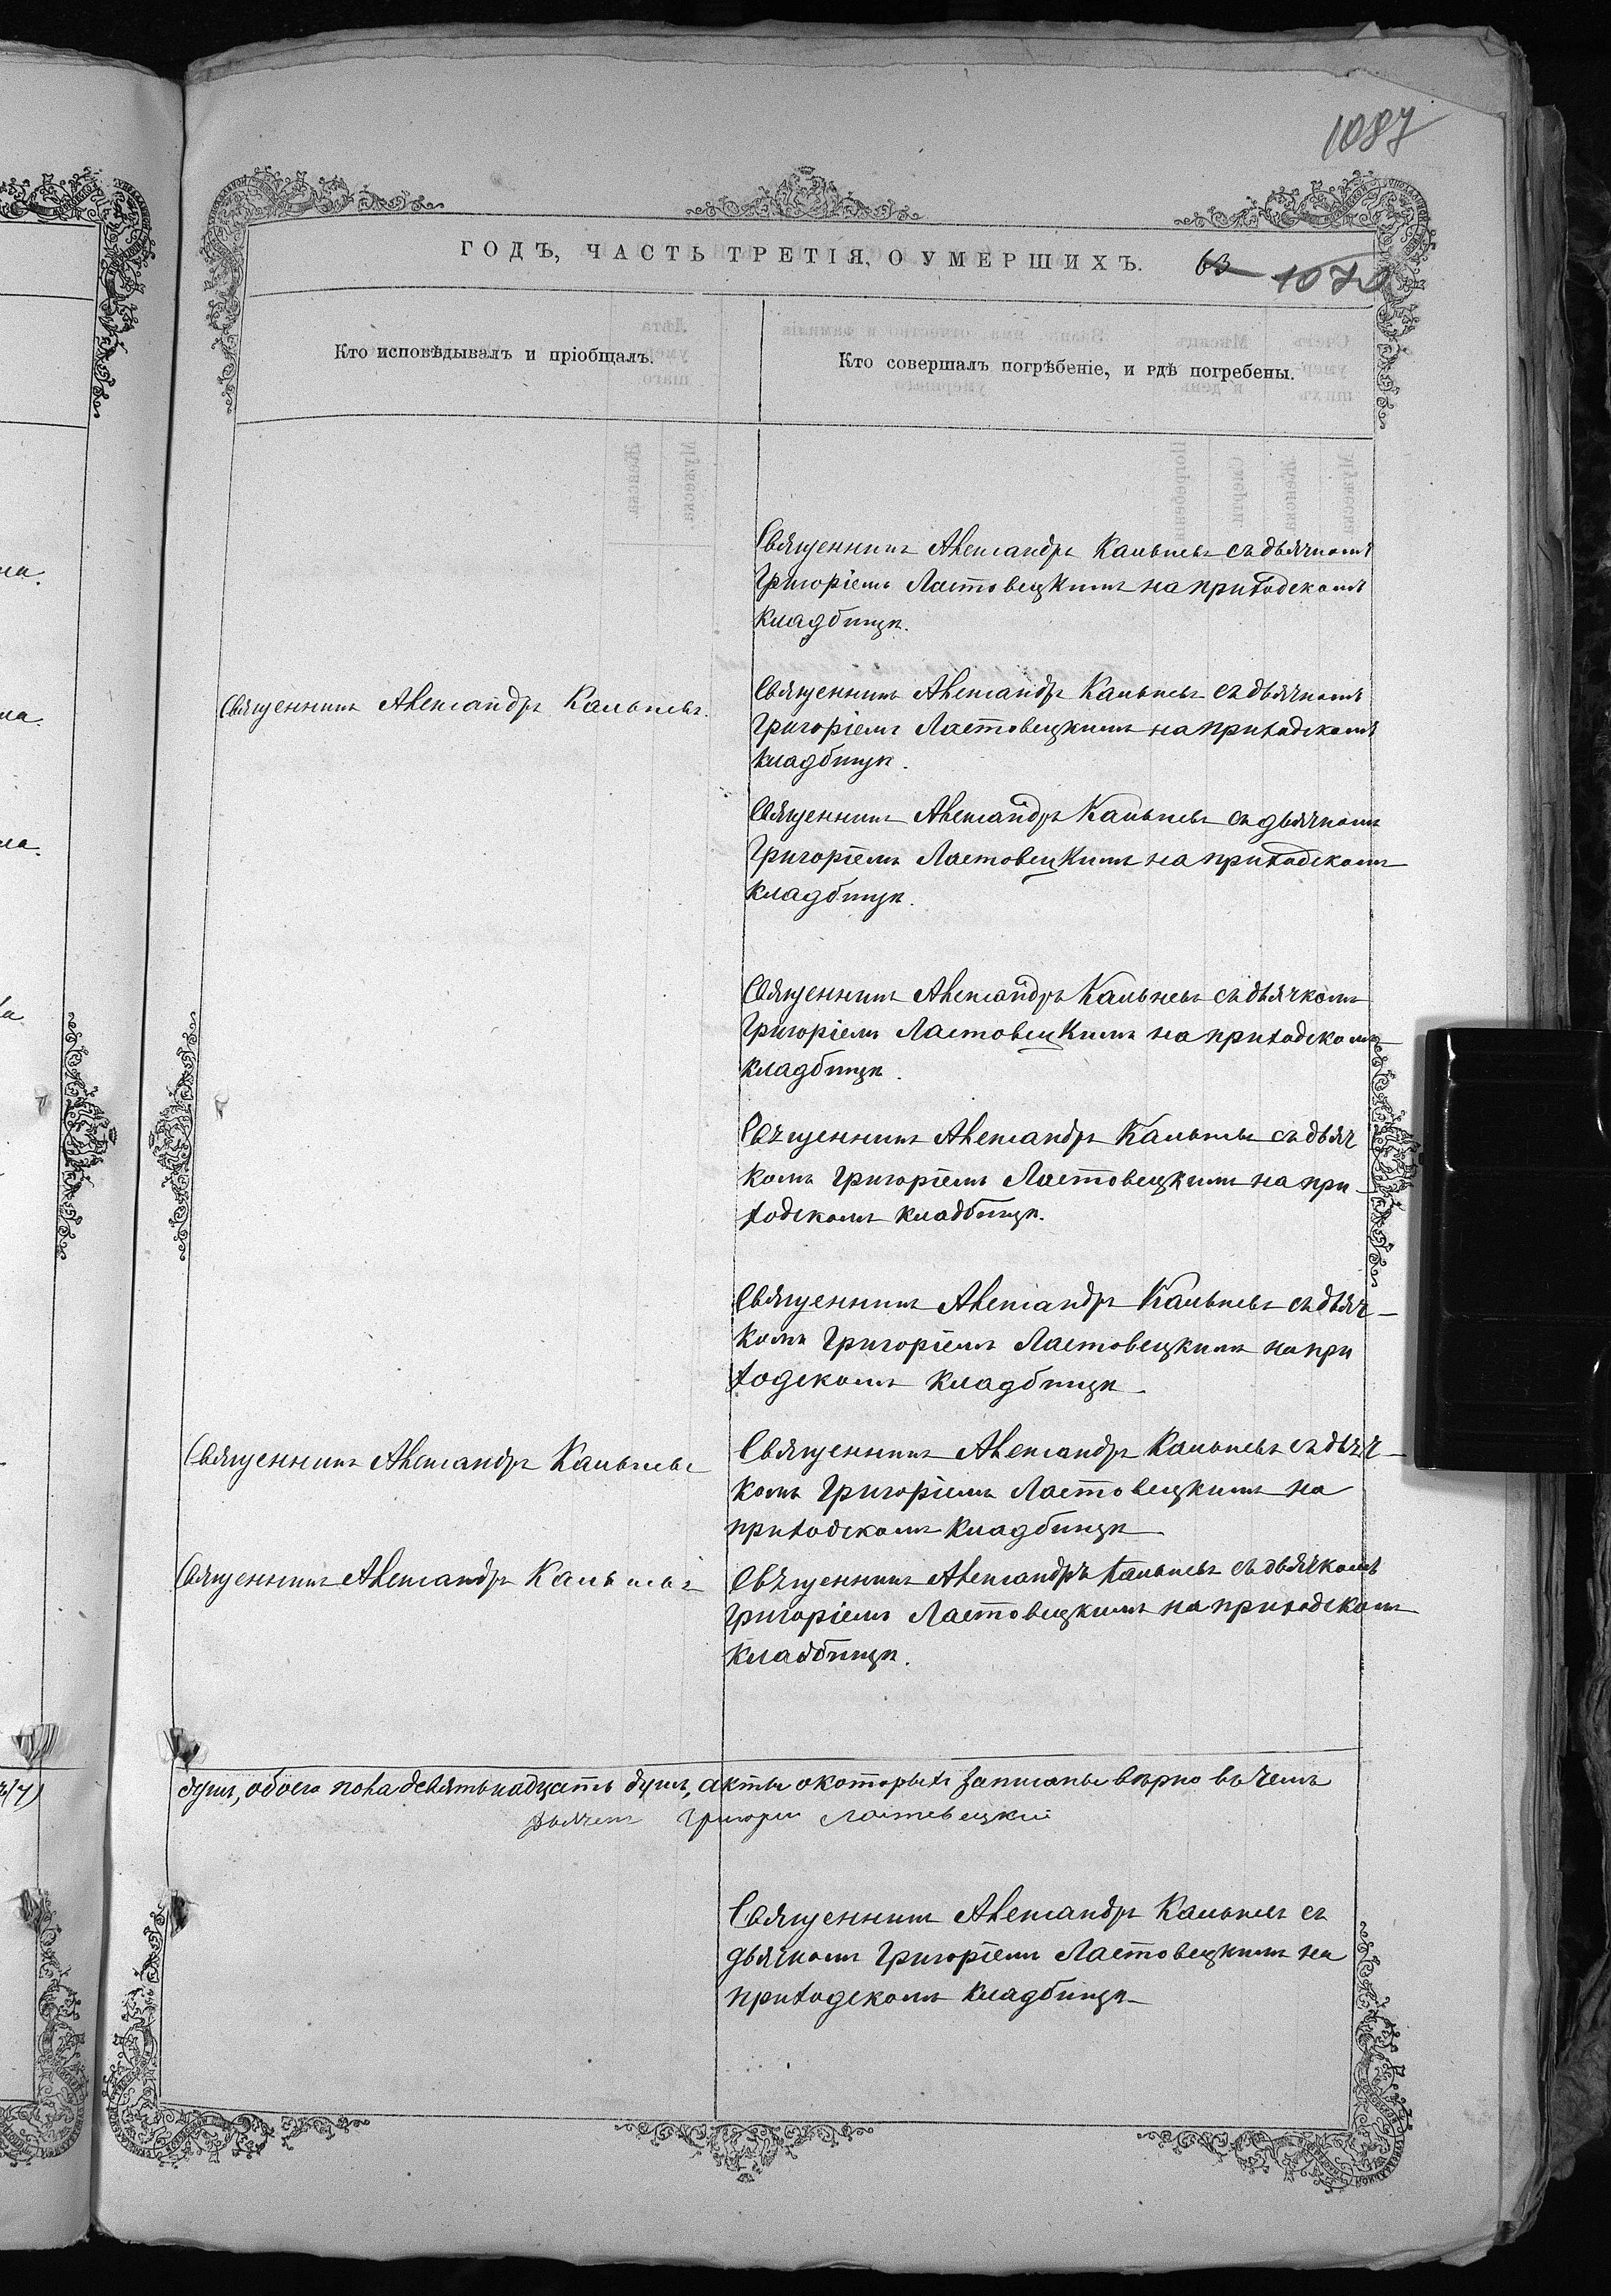 1087
ГОДЪ, ЧАСТЬ ТРЕТІЯ, О УМЕРШИХЪ.
63 1070
Кто исповѣдывалъ и пріобщалъ.
Кто совершалъ погрѣбеніе, и гдѣ погребены.
Священникъ Александръ съ дьячкомъ
Григоріемъ Ластовецкимъ на приходскомъ
кладбищѣ.
Священникъ Александръ
Священникъ Александръ съ дьячкомъ
Григоріемъ Ластовецкимъ на приходскомъ
кладбищѣ.
Священникъ Александръ съ дьячкомъ
Григоріемъ Ластовецкимъ на приходскомъ
кладбищѣ.
Священникъ Александръ съ дьячкомъ
Григоріемъ Ластовецкимъ на приходскомъ
кладбищѣ.
Священникъ Александръ съ дьяч
комъ Григоріемъ Ластовецкимъ на при-
ходскомъ кладбищѣ.
Священникъ Александръ съ дьяч-
комъ Григоріемъ Ластовецкимъ на при
ходскомъ кладбищѣ
Священникъ Александръ
Священникъ Александръ съ дьяч-
комъ Григоріемъ Ластовецкимъ на
приходскомъ кладбищѣ
Священникъ Александръ
Священникъ Александръ съ дьячкомъ
Григоріемъ Ластовецкимъ на приходскомъ
кладбищѣ.
душъ, обоего пола девятьнадцать душъ, акты о которыхъ записаны вѣрно въ чемъ
Дьячекъ Григорій Ластовецкій
Священникъ Александръ съ
дьячкомъ Григоріемъ Ластовецкимъ на
приходскомъ кладбищѣ